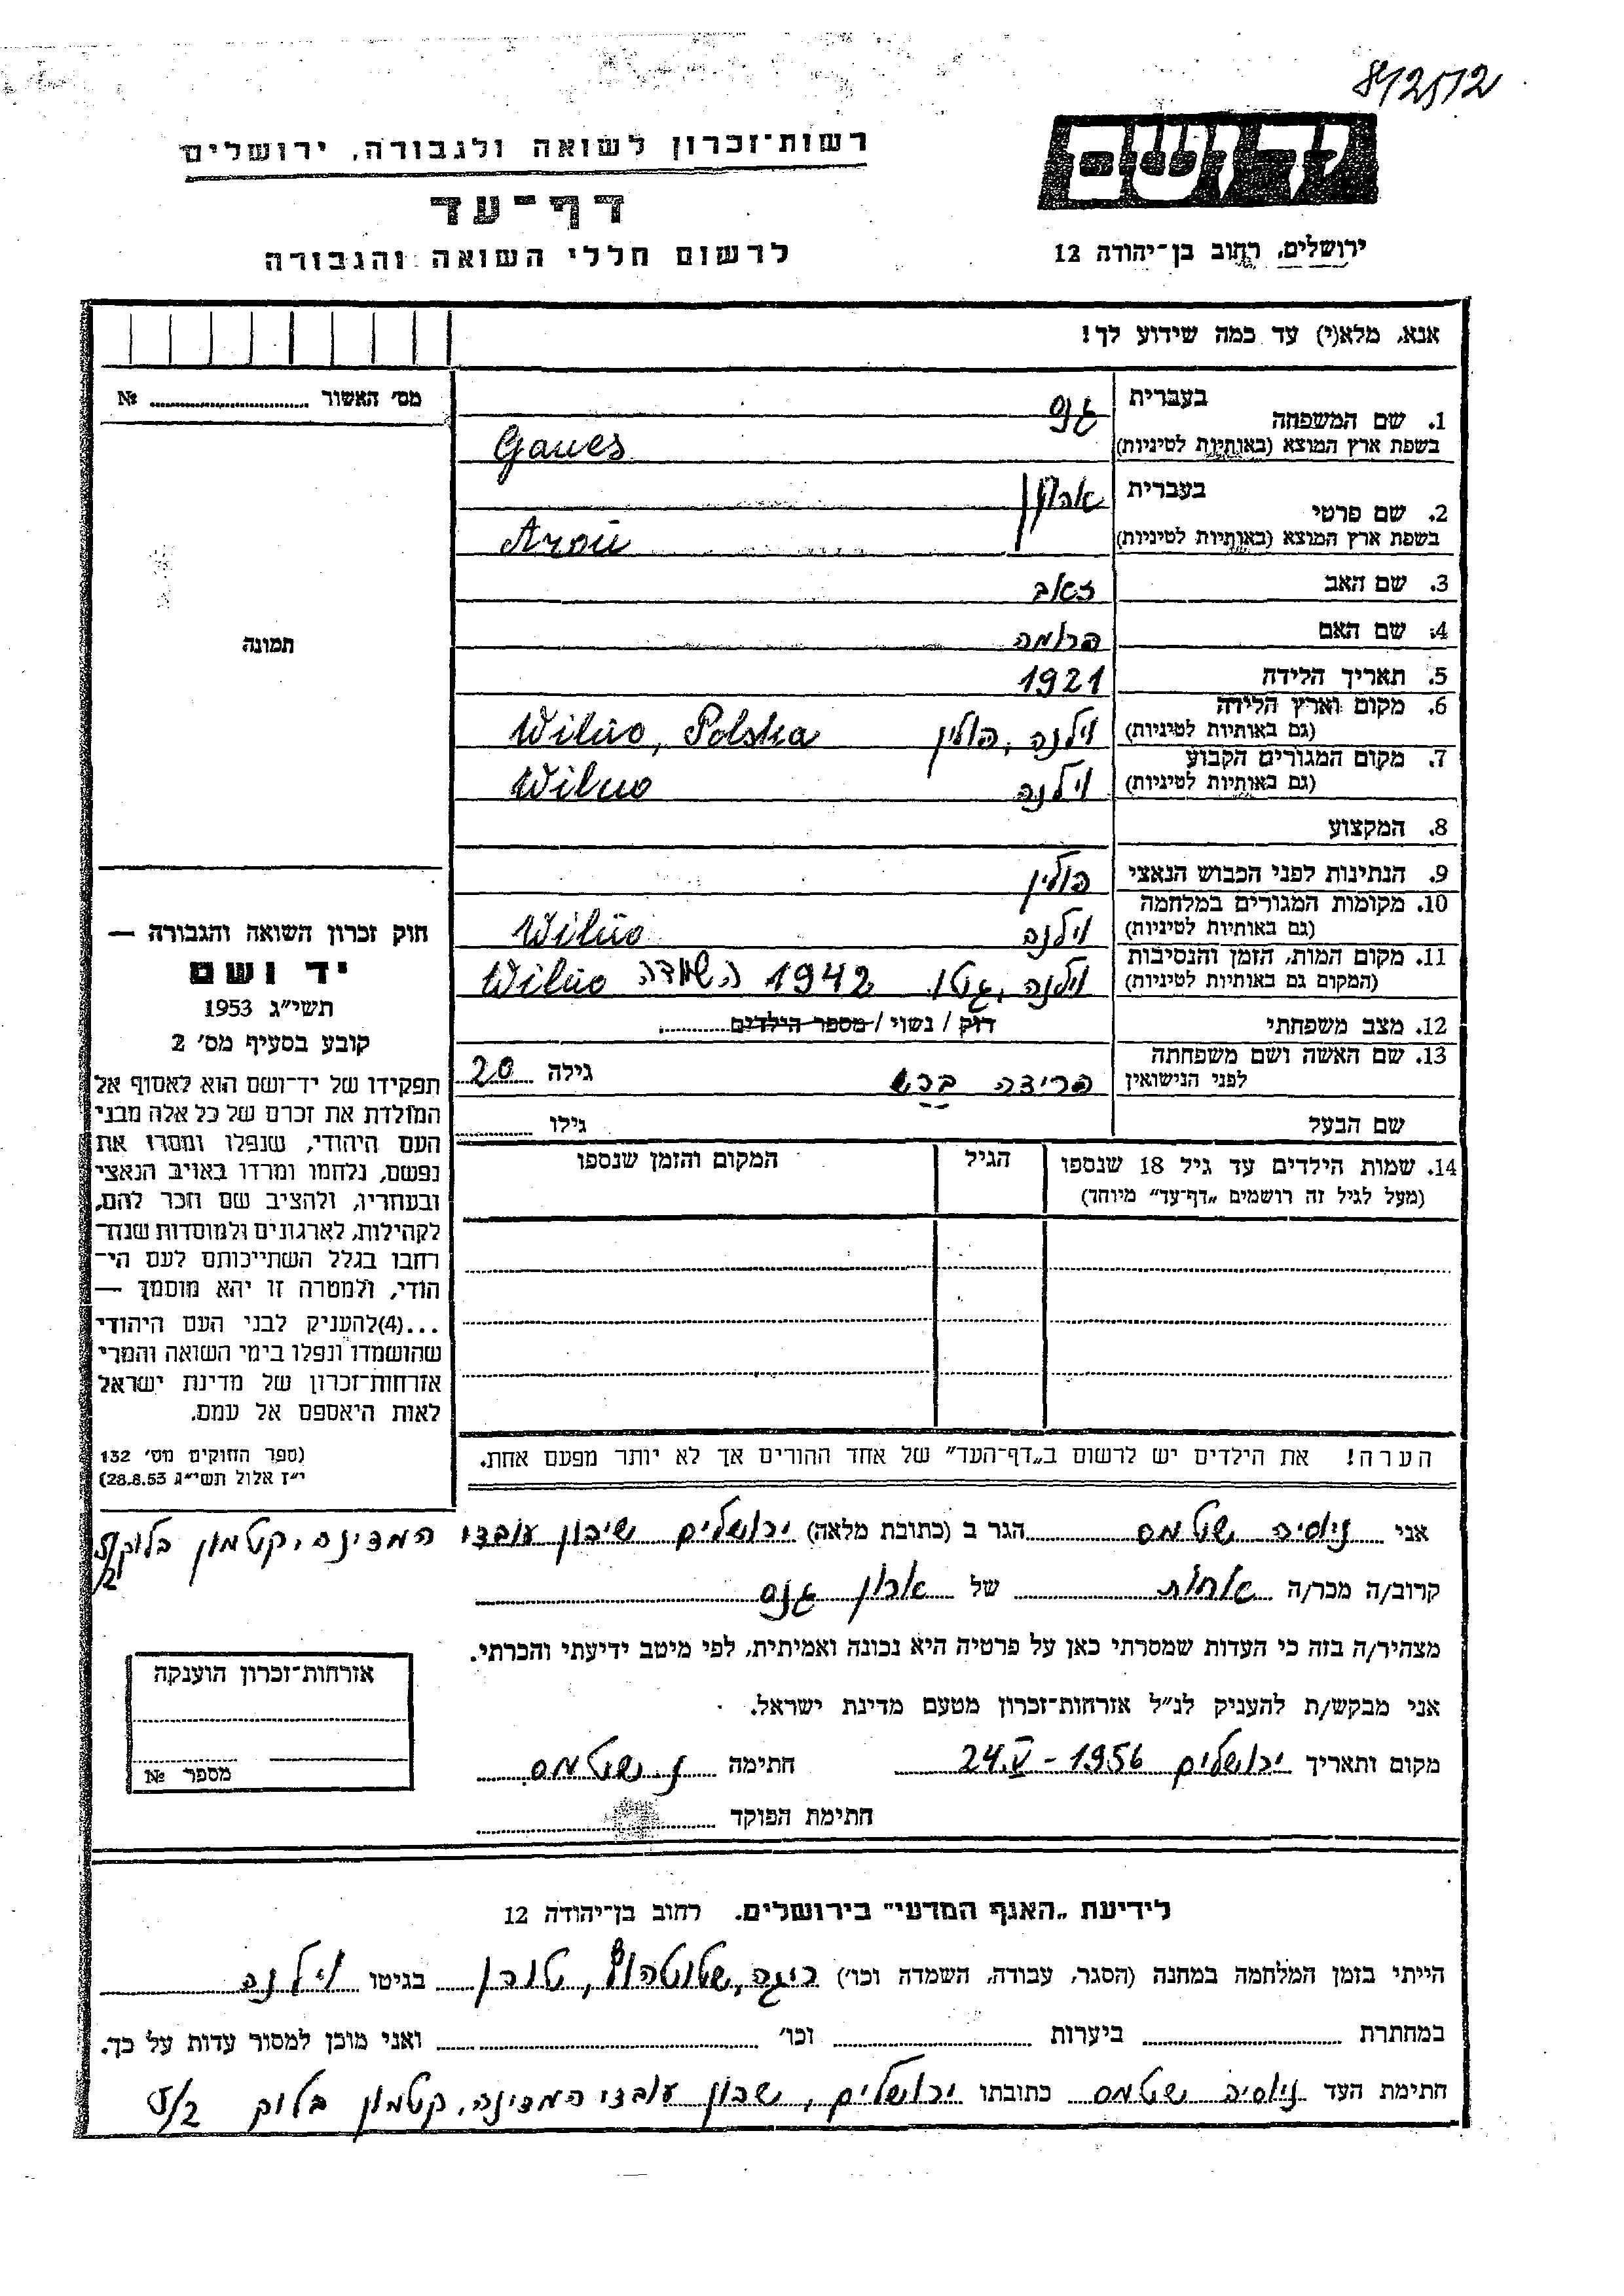 8/2512
יד ושם
רשות־זכרון לשואה ולגבורה, ירושלים
דף־עד
לרשום חללי השואה והגבורה
ירושלים, רחוב בן־יהודה 12
אנא, מלא(י) עד כמה שידוע לך!
מס׳ האשור № 
1. שם המשפחה בעברית גנס
בשפת ארץ המוצא (באותיות לטיניות) Ganes
2. שם פרטי בעברית אהרון
בשפת ארץ המוצא (באותיות לטיניות) Aron
3. שם האב זאב
4. שם האם פרומה
5. תאריך הלידה 1921
6. מקום וארץ הלידה
(גם באותיות לטיניות) וילנה, פולין Wilno, Polska
7. מקום המגורים הקבוע
(גם באותיות לטיניות) וילנה Wilno
8. המקצוע
9. הנתינות לפני הכבוש הנאצי פולין
10. מקומות המגורים במלחמה
(גם באותיות לטיניות) וילנה Wilno
11. מקום המות, הזמן והנסיבות
(המקום גם באותיות לטיניות) וילנה, גיטו. 1942 השמדה Wilno
12. מצב משפחתי רווק / נשוי / מספר הילדים
13. שם האשה ושם משפחתה
לפני הנישואין פרידה ברש גילה 20
שם הבעל גילו
14. שמות הילדים עד גיל 18 שנספו הגיל המקום והזמן שנספו
(מעל לגיל זה רושמים „דף־עד" מיוחד)
הערה! את הילדים יש לרשום ב„דף־העד" של אחד ההורים אך לא יותר מפעם אחת.
תמונה
חוק זכרון השואה והגבורה —
יד ושם
תשי״ג 1953
קובע בסעיף מס׳ 2
תפקידו של יד־ושם הוא לאסוף אל
המולדת את זכרם של כל אלה מבני
העם היהודי, שנפלו ומסרו את
נפשם, נלחמו ומרדו באויב הנאצי
ובעוזריו, ולהציב שם וזכר להם,
לקהילות, לארגונים ולמוסדות שנח־
רבו בגלל השתייכותם לעם הי־
הודי, ולמטרה זו יהא מוסמך —
...(4)להעניק לבני העם היהודי
שהושמדו ונפלו בימי השואה והמרי
אזרחות־זכרון של מדינת ישראל
לאות היאספם אל עמם.
(ספר החוקים מס׳ 132
י״ז אלול תשי״ג 28.8.53)
אני ניוסיה שטמס הגר ב (כתובת מלאה) ירושלים שיכון עובדי המדינה, קטמון בלוק 5/
2
קרוב/ה מכר/ה אחות של אהרון גנס
מצהיר/ה בזה כי העדות שמסרתי כאן על פרטיה היא נכונה ואמיתית, לפי מיטב ידיעתי והכרתי.
אני מבקש/ת להעניק לנ״ל אזרחות־זכרון מטעם מדינת ישראל.
מקום ותאריך ירושלים 24.V-1956 חתימה נ. שטמס
חתימת הפוקד
אזרחות־זכרון הוענקה
מספר №
לידיעת „האגף המדעי" בירושלים. רחוב בן־יהודה 12
הייתי בזמן המלחמה במחנה (הסגר, עבודה, השמדה וכו׳) ריגה, שטוטהוף, טורן בגיטו וילנה
במחתרת ביערות וכו׳ ואני מוכן למסור עדות על כך.
חתימת העד ניוסיה שטמס כתובתו ירושלים, שכון עובדי המדינה, קטמון בלוק 5/2